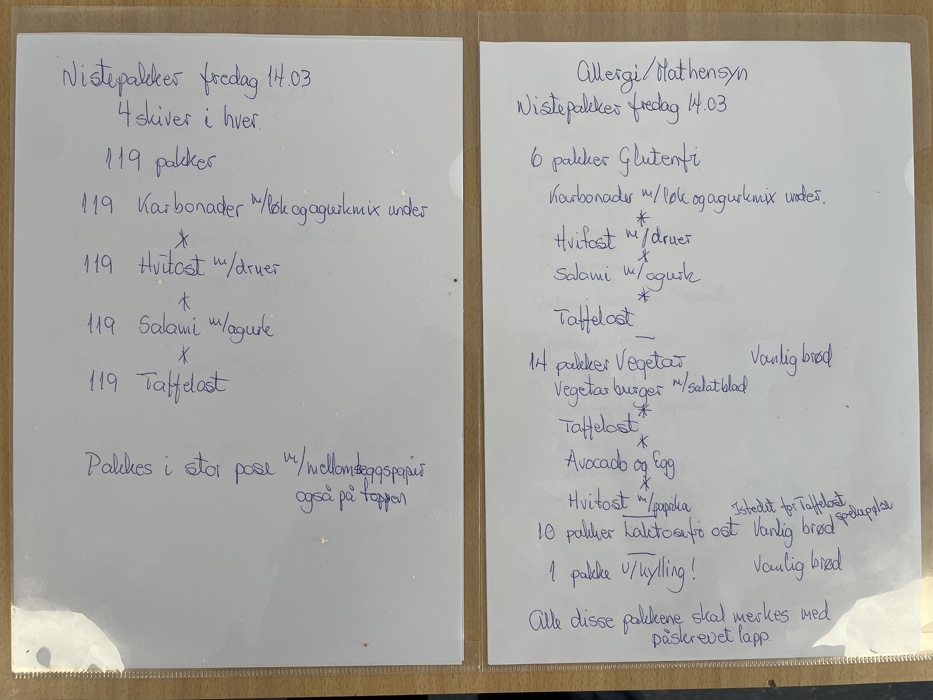 Nistepakker fredag 14.03
4 skiver i hver.
119 pakker
119 Karbonader m/løk og agurkmix under
*
119 Hvitost m/druer
*
119 Salami m/agurk
*
119 Taffelost
Pakkes i stor pose m/mellomleggspapir
også på toppen
Allergi/Mathensyn
Nistepakker fredag 14.03
6 pakker Glutenfri
Karbonader m/løk og agurkmix under.
*
Hvitost m/druer
*
Salami m/agurk
*
Taffelost
—
14 pakker Vegetar Vanlig brød
Vegetarburger m/salatblad
*
Taffelost
*
Avocado og Egg
*
Hvitost m/paprika
Istedet for Taffelost
10 pakker Laktosefri ost Vanlig brød
—
1 pakke u/kylling! Vanlig brød
Alle disse pakkene skal merkes med
påskrevet lapp